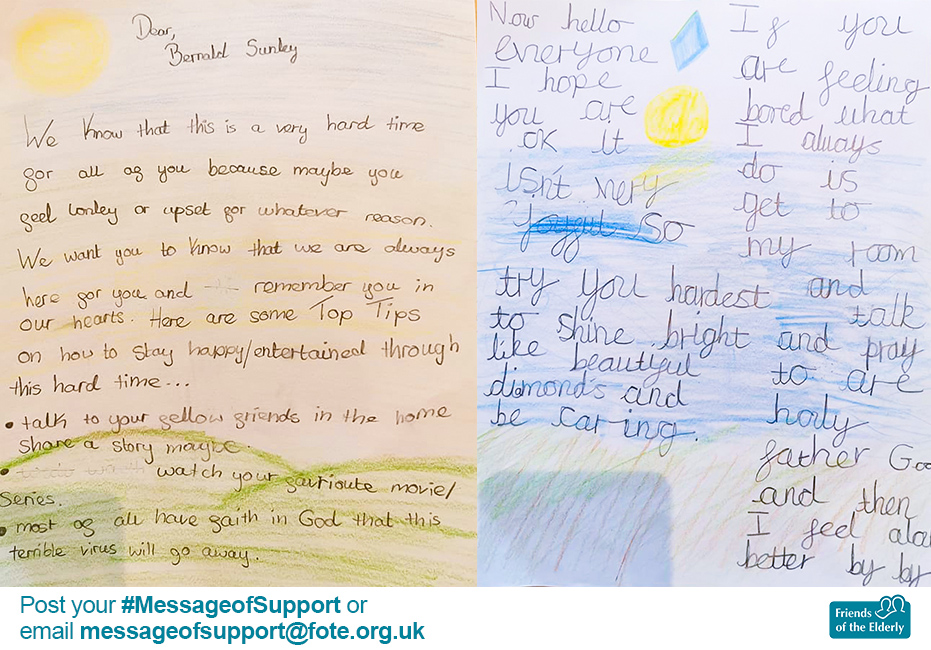 Dear,
Bernald Sunley
We know that this is a very hard time
for all of you because maybe you
feel lonley or upset for whatever reason.
We want you to know that we are always
here for you and remember you in
our hearts. Here are some Top Tips
on how to stay happy/entertained through
this hard time...
• talk to your fellow friends in the home
share a story maybe.
• watch your favrioute movie/
Series.
• most of all have faith in God that this
terrible virus will go away.
Now hello
everyone
I hope
you are
ok it
isn't very
joyful so
try you hardest
to shine bright
like beautiful
dimonds and
be caring.
If you
are feeling
bored what
I always
do is
get to
my room
and
talk
and pray
to are
holy
father
and then
I feel
better by by
Post your #MessageofSupport or
email messageofsupport@fote.org.uk
Friends
of the Elderly